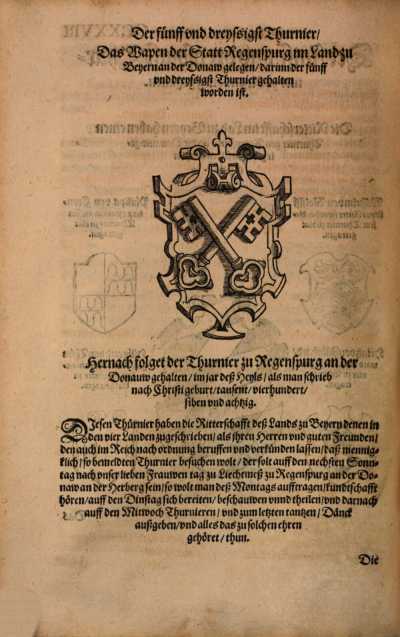 Der fünff vnd dreyssigst Thurnier/
Das Wapen der Statt Regenspurg im Land zu
Beyern an der Donaw gelegen/ darinn der fünff
vnd dreyssigst Thurnier gehalten
worden ist.
Hernach folget der Thurnier zu Regenspurg an der
Donauw gehalten/ im jar deß Heyls/ als man schrieb
nach Christi geburt/ tausent/ vierhundert/
siben vnd achtzig.
DJesen Thürnier haben die Ritterschafft deß Lands zu Beyern denen in
den vier Landen zugeschrieben/ als jhren Herren vnd guten Freunden/
den auch im Reich nach ordnung beruffen vnd verkünden lassen/ daß mennig-
klich/ so bemeldten Thurnier besuchen wolt/ der solt auff den nechsten Sonn-
tag nach vnser lieben Frauwen tag zu Liechtmeß zu Regenspurg an der Do-
naw an der Herberg sein/ so wolt man deß Montags aufftragen/ kundtschafft
hören/ auff den Dinstag sich bereiten/ beschauwen vnnd theilen/ vnd darnach
auff den Mitwoch Thurnieren/ vnd zum letzten tantzen/ Dänck
außgeben/ vnd alles das zu solchen ehren
gehöret/ thun.
Die